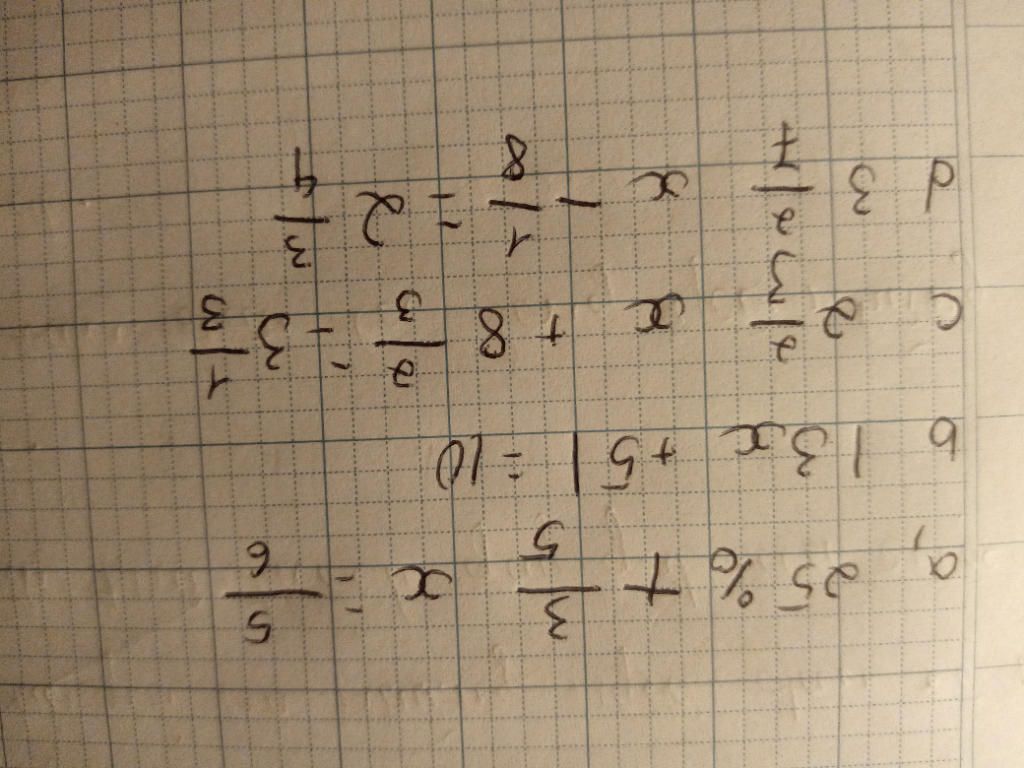 a, 25% + 3/5 x = 5/6
b |3x + 5| = 10
c 2 2/3 x + 8 2/3 = 3 1/3
d 3 2/7 x - 1/8 = 2 3/4